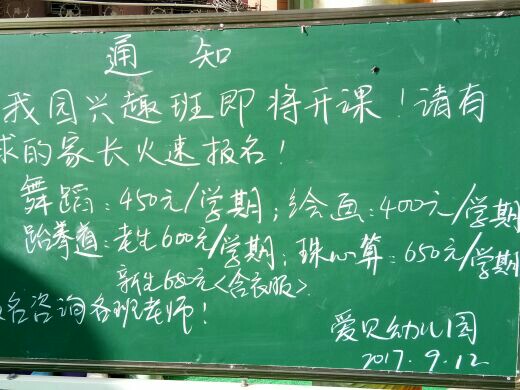 通知
我园兴趣班即将开课！请有
求的家长火速报名！
舞蹈：450元/学期；绘画：400元/学期
跆拳道：老生600元/学期；珠心算：650元/学期
新生680元<含衣服>
名咨询各班老师！
爱贝幼儿园
2017.9.12